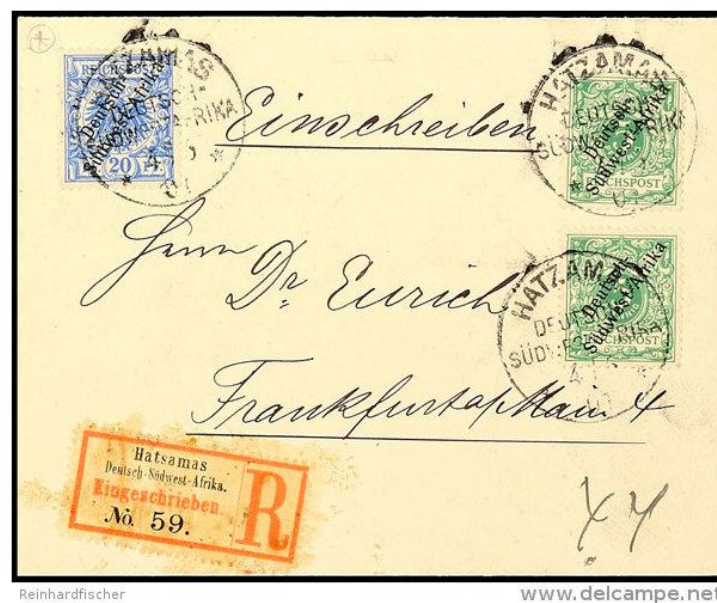 REICHSPOST
Deutsch-
Südwest-Afrika
20
HATZAMAS
DEUTSCH-
SÜDWESTAFRIKA
Einschreiben
HATZAMAS
DEUTSCH-
SÜDWESTAFRIKA
Deutsch-
Südwest-Afrika
REICHSPOST
Herrn Dr Eurich
HATZAMAS
DEUTSCH-
SÜDWESTAFRIKA
Deutsch-
Südwest-Afrika
REICHSPOST
Frankfurt a/Main 4
Hatsamas
Deutsch-Südwest-Afrika.
Eingeschrieben.
No. 59.
R
Reinhardfischer
delcampe.net